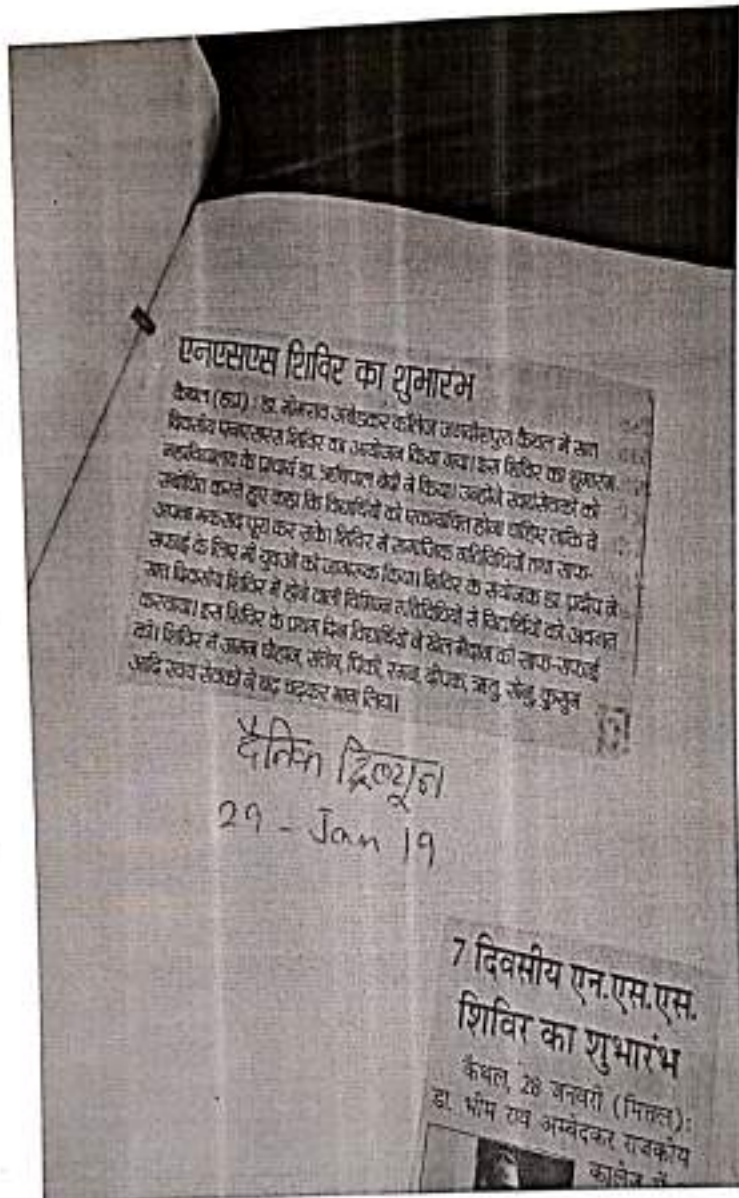 एनएसएस शिविर का शुभारंभ
कैथल (हप्र) : डा. भीमराव अंबेडकर कॉलेज जगदीशपुरा कैथल में सात
दिवसीय एनएसएस शिविर का आयोजन किया गया। इस शिविर का शुभारंभ
महाविद्यालय के प्राचार्य डा. ऋषिपाल बेदी ने किया। उन्होंने स्वयंसेवकों को
संबोधित करते हुए कहा कि विद्यार्थियों को एकाग्रचित होना चाहिए ताकि वे
अपना मकसद पूरा कर सकें। शिविर में सामाजिक गतिविधियों तथा साफ-
सफाई के लिए भी युवाओं को जागरूक किया। शिविर के संयोजक डा. प्रदीप ने
सात दिवसीय शिविर में होने वाली विभिन्न गतिविधियों से विद्यार्थियों को अवगत
करवाया। इस शिविर के प्रथम दिन विद्यार्थियों ने खेल मैदान की साफ-सफाई
की। शिविर में अमन, चौहान, संतोष, पिंकी, रमन, दीपक, ऋतु, सोनू, कुसुम
आदि स्वयं सेवकों ने बढ़ चढ़कर भाग लिया।
दैनिक ट्रिब्यून
29 - Jan 19
7 दिवसीय एन.एस.एस.
शिविर का शुभारंभ
कैथल, 28 जनवरी (मित्तल):
डा. भीम राव अम्बेदकर राजकीय
कालेज में